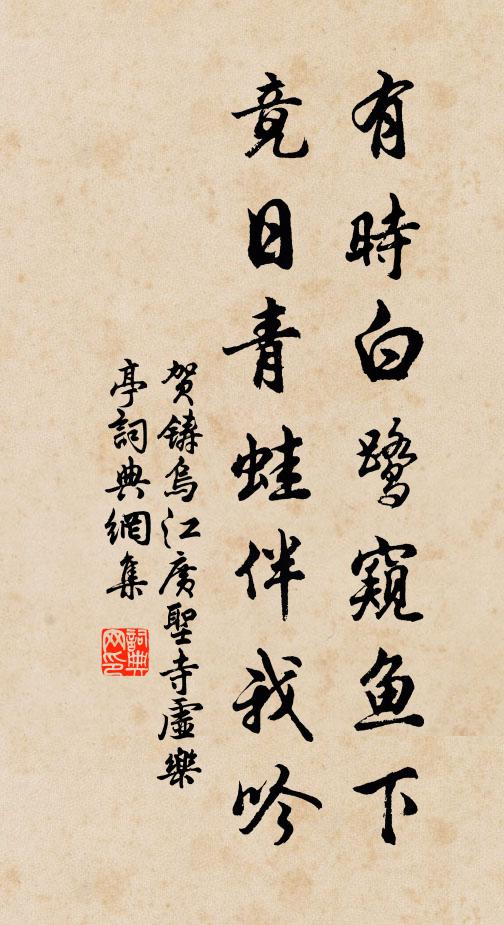 有時白鹭窺鱼下
竟日青蛙伴我吟
贺鑄烏江廣聖寺虛樂
亭詞典網集
詞典網印